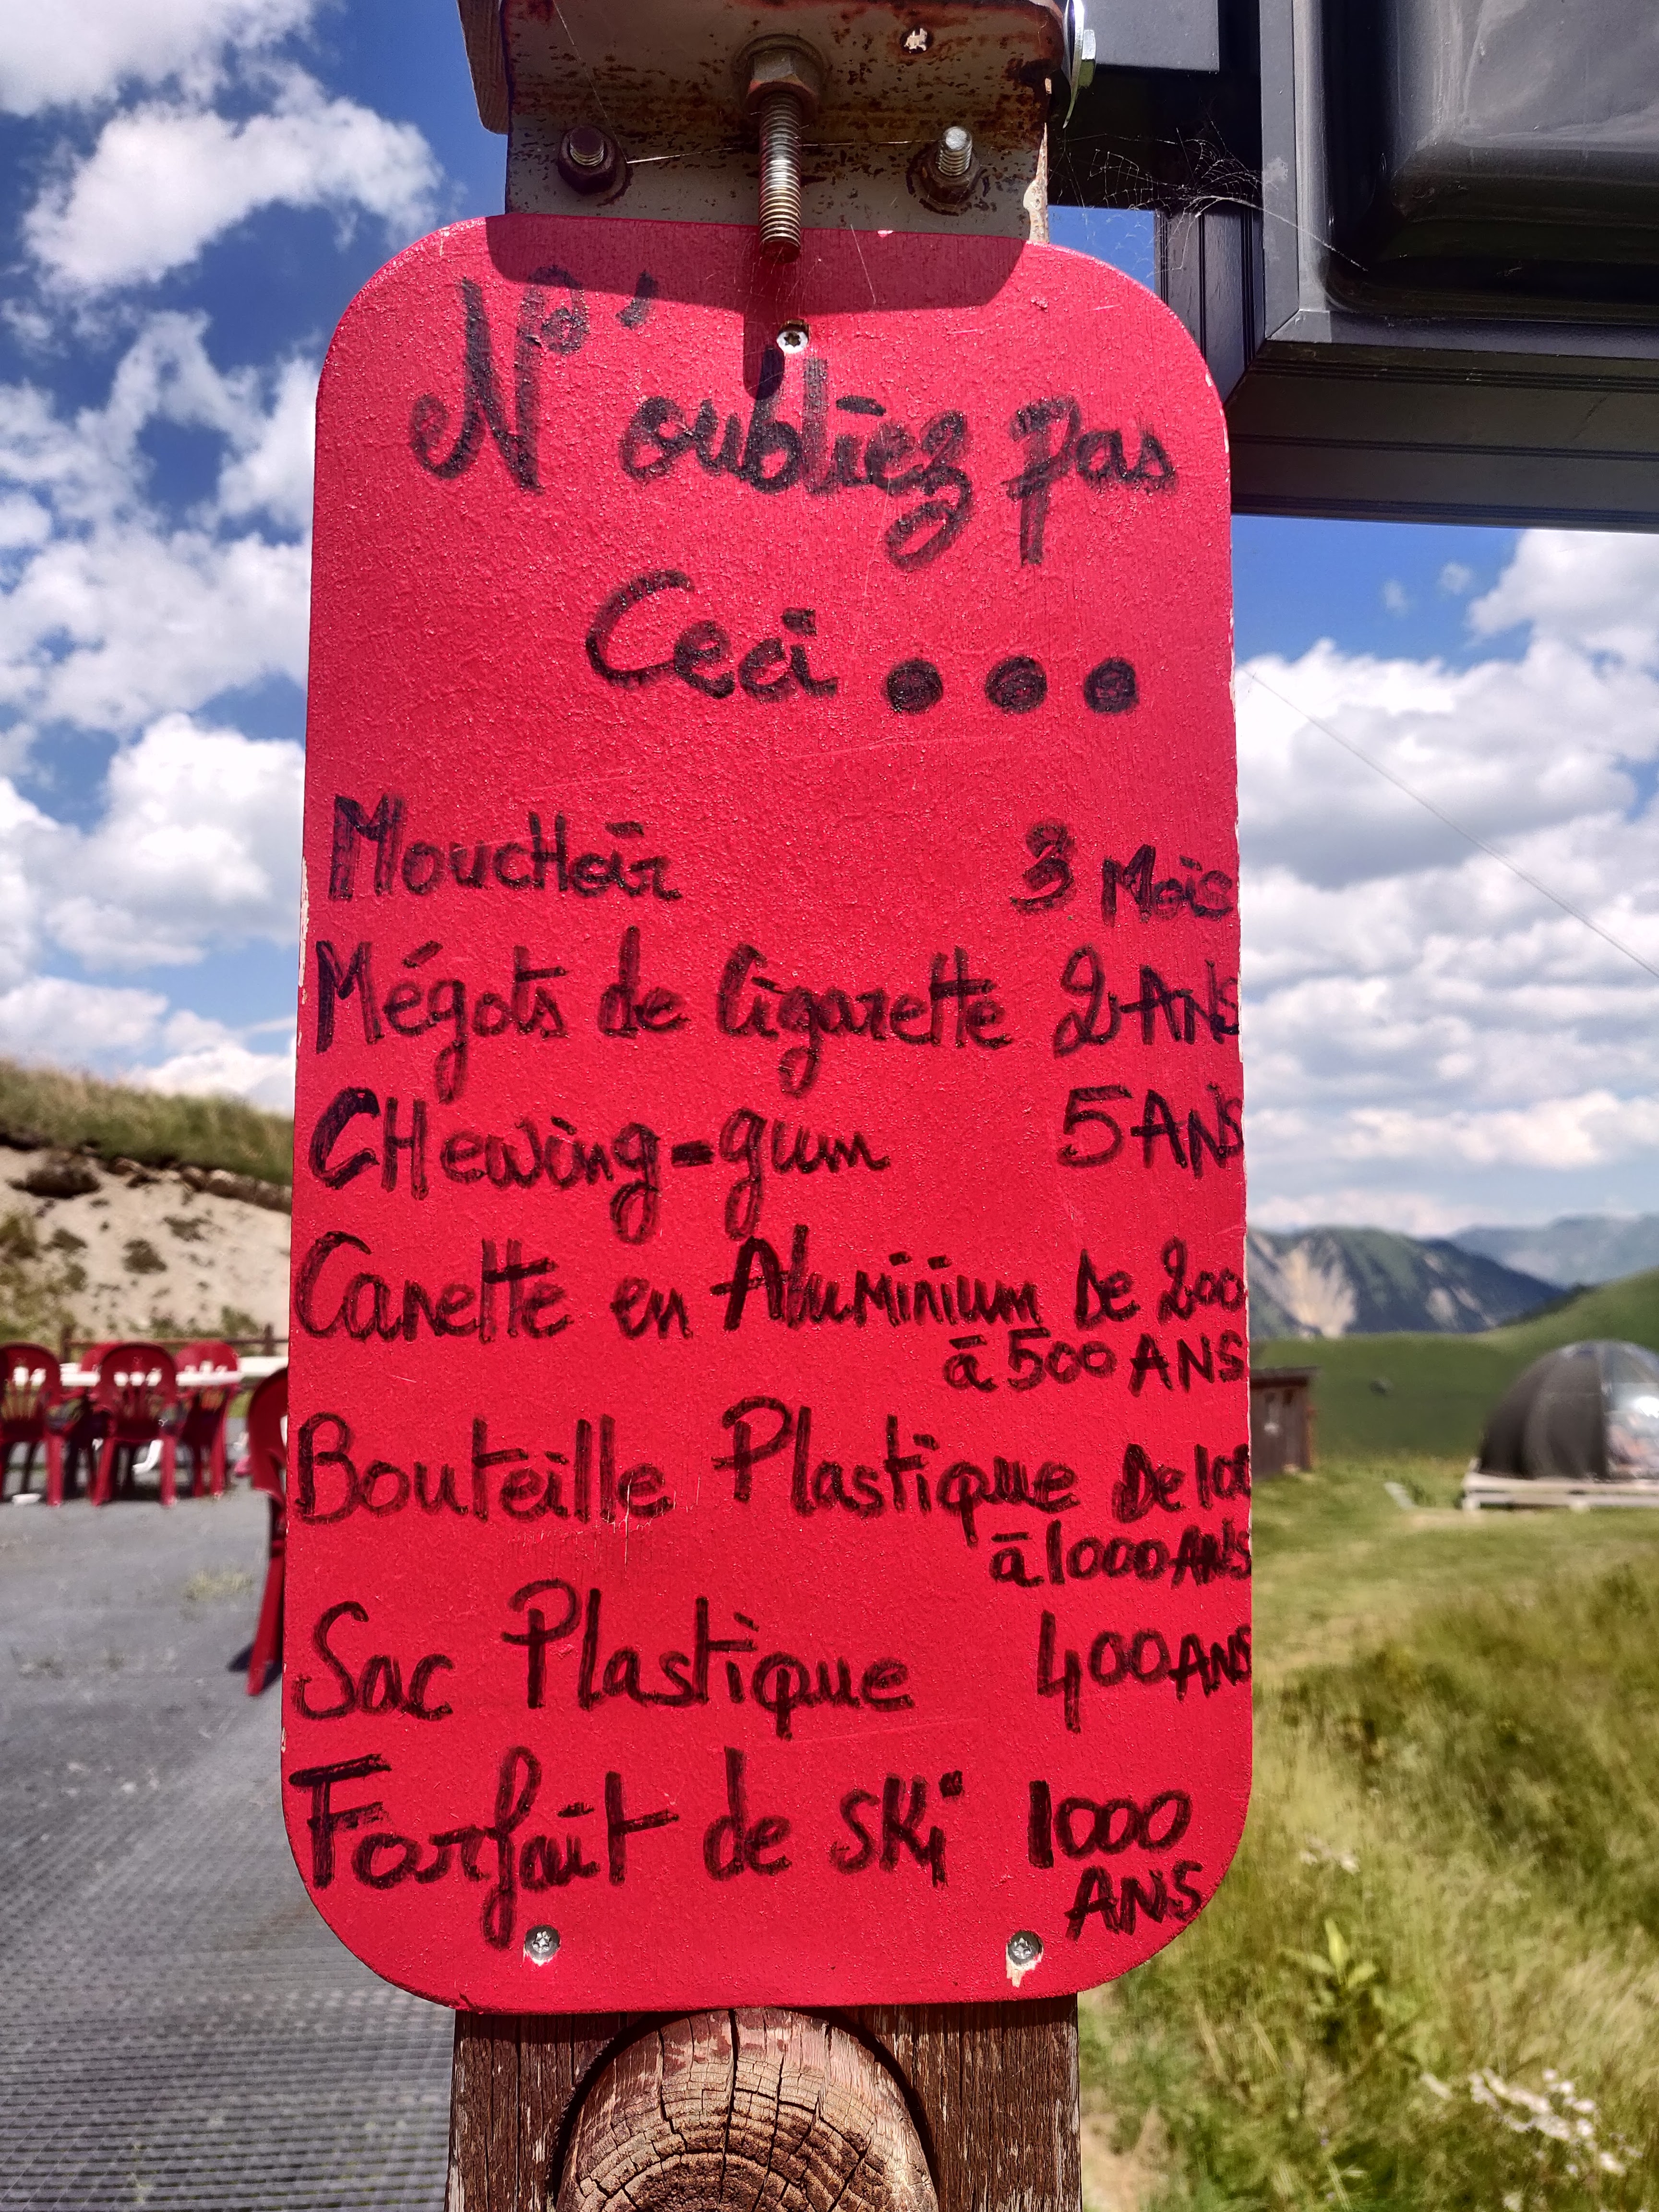 N'oubliez pas
Ceci...
Mouchoir 3 Mois
Mégots de Cigarette 2 ANS
CHewing-gum 5 ANS
Canette en Aluminium De 200
à 500 ANS
Bouteille Plastique De 100
à 1000 ANS
Sac Plastique 400 ANS
Forfait de SKi 1000
ANS